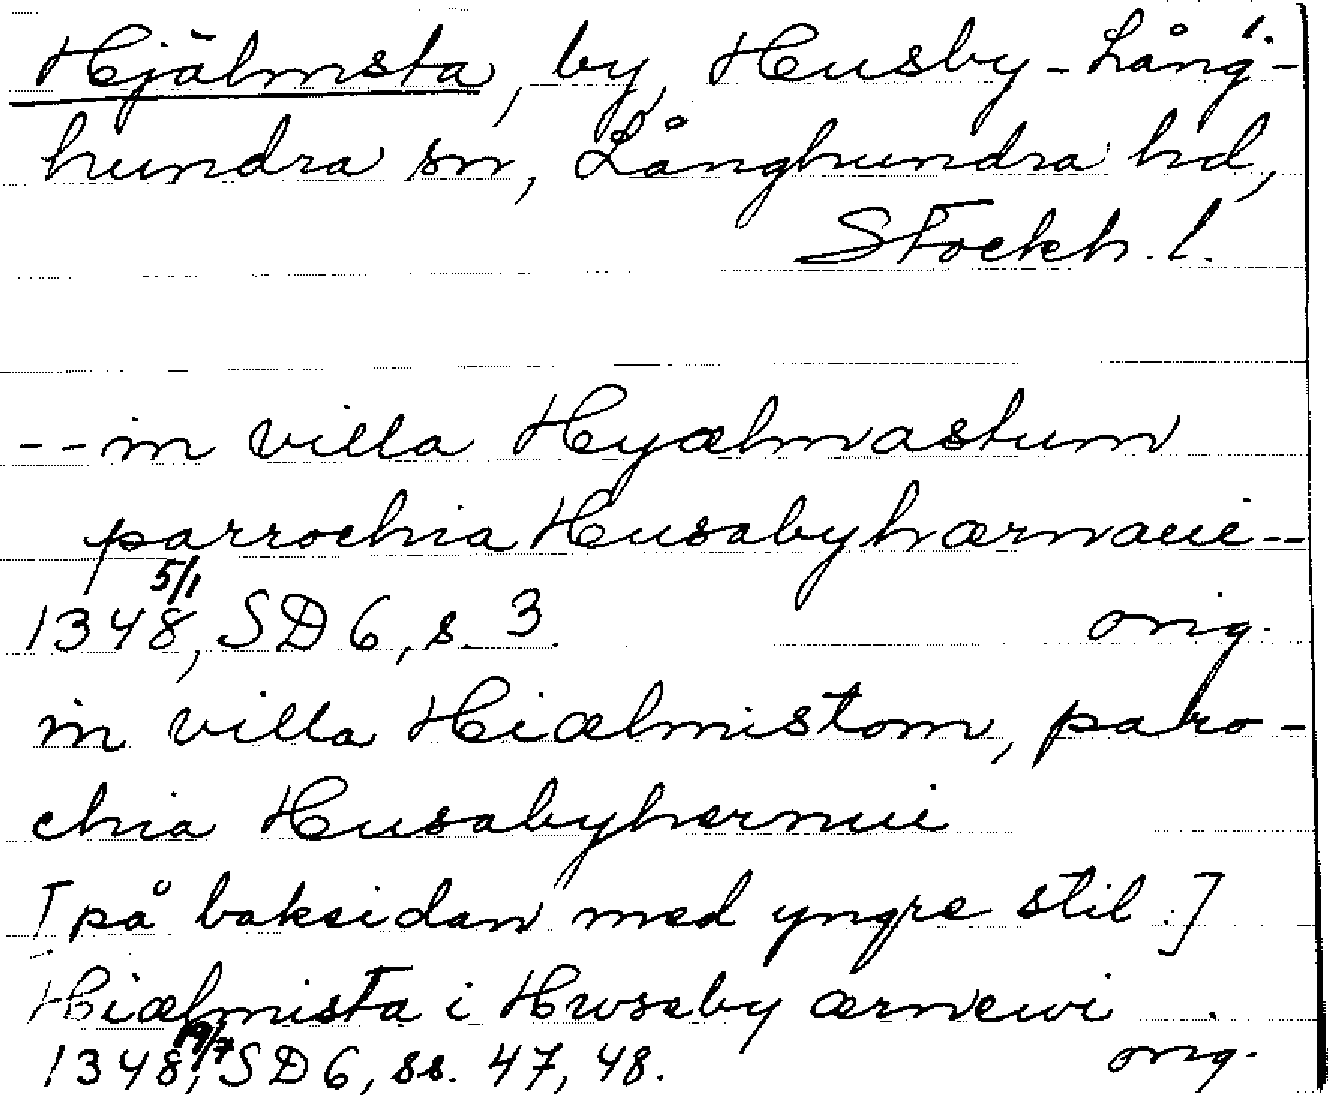 Hjälmsta, by, Husby-Lång-
hundra sn, Långhundra hd,
Stockh. l.
-- in villa Hyælmastum
parrochia Husabyhærnaui --
1348 5/1, SD 6, s. 3. orig.
in villa Hiælmistom, paro-
chia Husabyhernui
[på baksidan med yngre stil.]
Hiælmista i Hwsaby ærnewi
1348 19/7, SD 6, ss. 47, 48. orig.